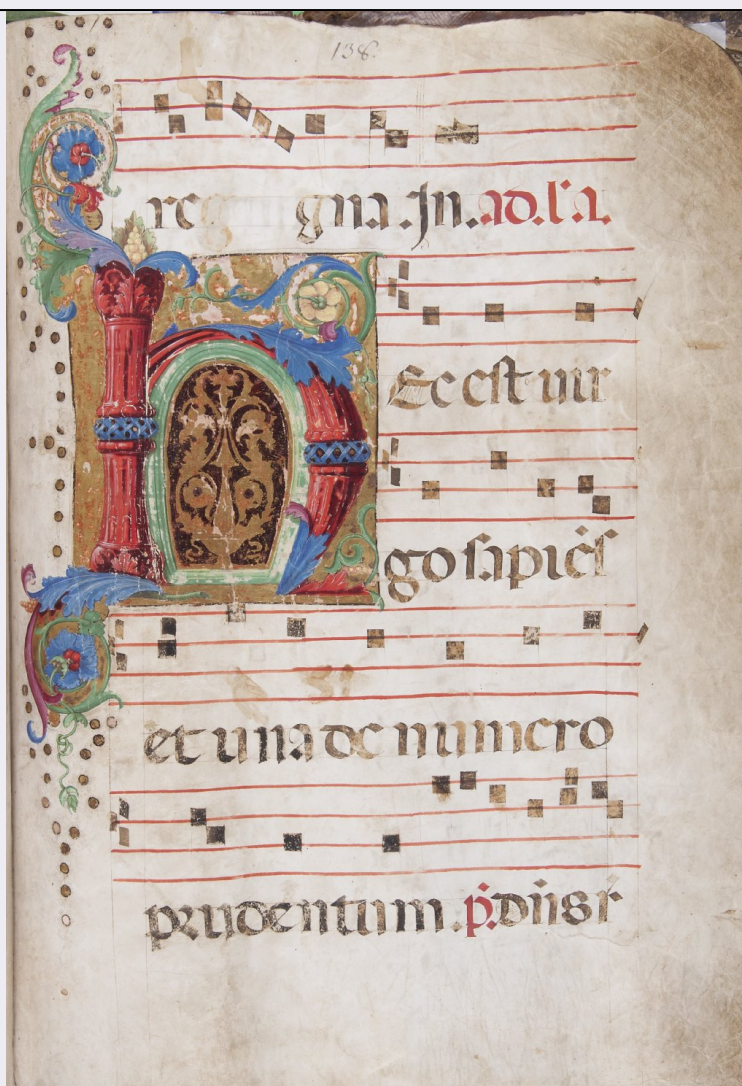 138.
re gna. In. ad. l'a.
hEc est uir
go sapiēs
et una de numero
prudentum. p̄. Dn̄s r